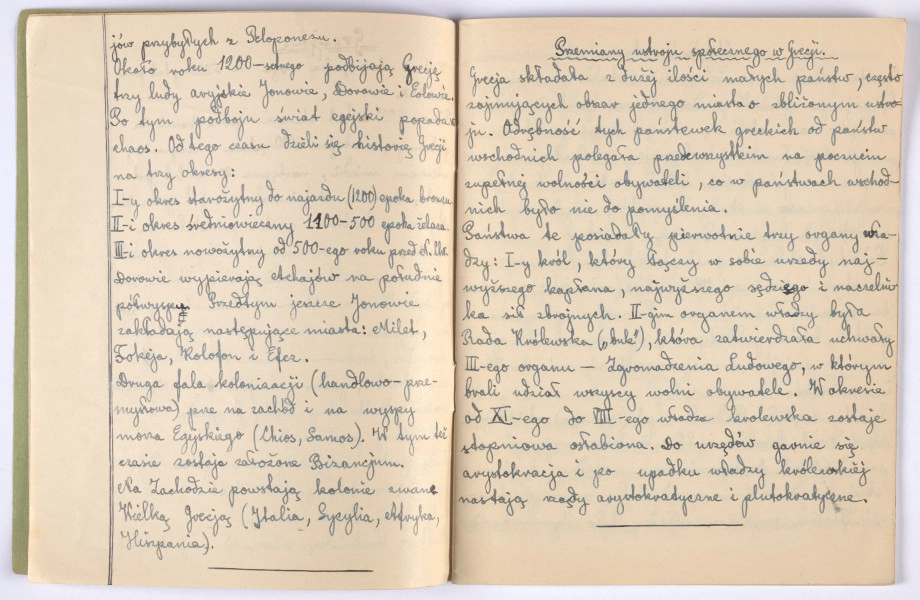 jów przybyłych z Peloponezu.
Około roku 1200-setnego podbijają Grecję
trzy ludy aryjskie Jonowie, Dorowie i Eolowie.
Po tym podboju świat egejski popada w
chaos. Od tego czasu dzieli się historię Grecji
na trzy okresy:
I-y okres starożytny do najazdu (1200) epoka bronzu
II-i okres średniowieczny 1100-500 epoka żelaza
III-i okres nowożytny od 500-ego roku przed N. Chr.
Dorowie wypierają Achajów na południe
półwyspu. Przedtym jeszcze Jonowie
zakładają następujące miasta: Milet,
Fokeja, Kolofon i Efez.
Druga fala kolonizacji (handlowo-prze-
mysłowa) prze na zachód i na wyspy
morza Egejskiego (Chios, Samos). W tym też
czasie zostaje założone Bizancjum.
Na Zachodzie powstają kolonie zwane
Wielką Grecją (Italia, Sycylia, Afryka,
Hiszpania).
Przemiany ustroju społecznego w Grecji.
Grecja składała z dużej ilości małych państw, często
zajmujących obszar jednego miasta o zbliżonym ustro-
ju. Odrębność tych państewek greckich od państw
wschodnich polegała przedewszystkim na poczuciu
zupełnej wolności obywateli, co w państwach wschod-
nich było nie do pomyślenia.
Państwa te posiadały pierwotnie trzy organy wła-
dzy: I-y król, który łączy w sobie urzędy naj-
wyższego kapłana, najwyższego sędziego i naczelni-
ka sił zbrojnych. II-gim organem władzy była
Rada Królewska („bulé"), która zatwierdzała uchwały
III-ego organu - Zgromadzenia Ludowego, w którym
brali udział wszyscy wolni obywatele. W okresie
od XI-ego do VIII-ego władza królewska zostaje
stopniowo osłabiona. Do urzędów garnie się
arystokracja i po upadku władzy królewskiej
nastają rządy arystokratyczne i plutokratyczne.